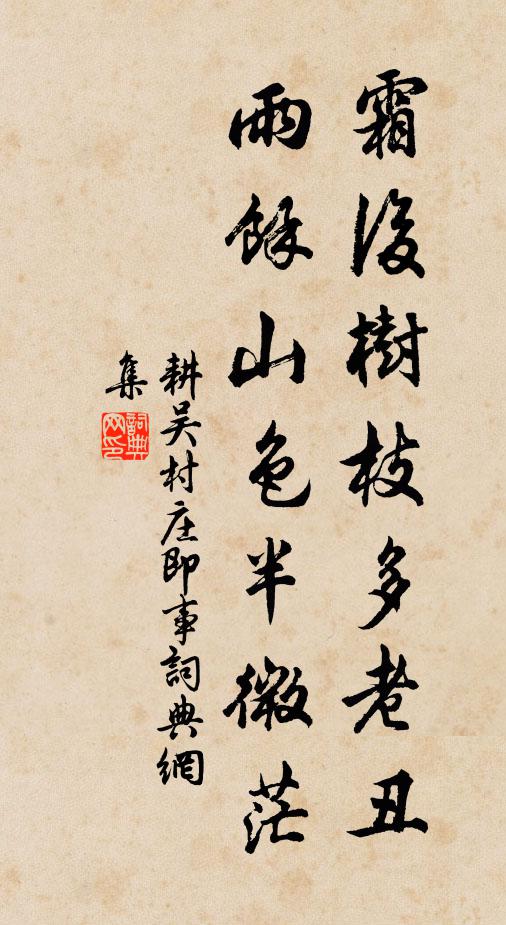 霜後樹枝多老丑
雨餘山色半微茫
耕吴村庄即事詞典網
集
詞典網印